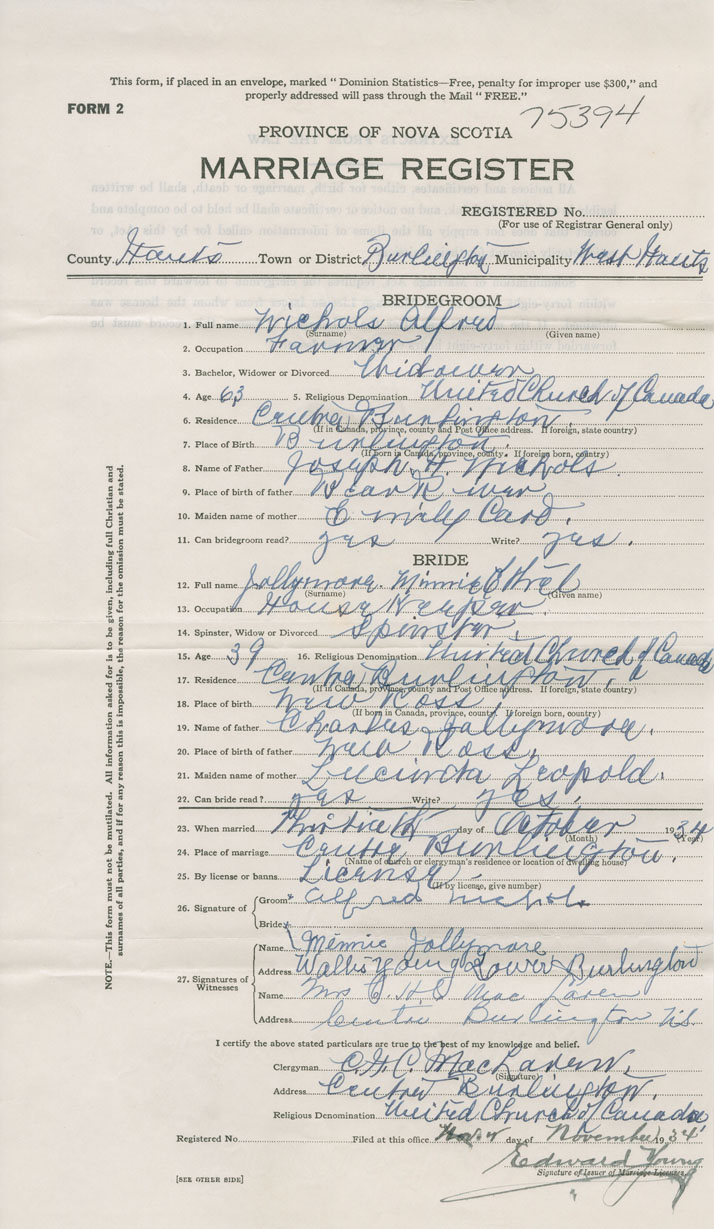 This form, if placed in an envelope, marked " Dominion Statistics—Free, penalty for improper use $300," and
properly addressed will pass through the Mail " FREE."
FORM 2
75394
PROVINCE OF NOVA SCOTIA
MARRIAGE REGISTER
REGISTERED No.
(For use of Registrar General only)
County Hants Town or District Burlington Municipality West Hants
BRIDEGROOM
1. Full name Nichols Alfred
(Surname) (Given name)
2. Occupation Farmer
3. Bachelor, Widower or Divorced Widower
4. Age 63 5. Religious Denomination United Church of Canada
6. Residence Centre Burlington.
(If in Canada, province, county and Post Office address. If foreign, state country)
7. Place of Birth Burlington.
(If born in Canada, province, county. If foreign born, county)
8. Name of Father Joseph H Nichols.
9. Place of birth of father Bear River
10. Maiden name of mother Emily Card.
11. Can bridegroom read? yes Write? yes.
BRIDE
12. Full name Jollymore. Minnie Ethel
(Surname) (Given name)
13. Occupation House Keeper.
14. Spinster, Widow or Divorced Spinster.
15. Age 39 16. Religious Denomination United Church of Canada
17. Residence Centre Burlington.
(If in Canada, province, county and Post Office address. If foreign, state country)
18. Place of birth New Ross.
(If born in Canada, province, county. If foreign born, county)
19. Name of father Charles Jollymore.
20. Place of birth of father New Ross.
21. Maiden name of mother Lucinda Leopold.
22. Can bride read? yes Write? yes.
23. When married Thirtieth day of October 1934
(Month) (Year)
24. Place of marriage Centre Burlington.
(Name of church or clergyman's residence or location of dwelling house)
25. By license or banns License
(If by license, give number)
26. Signature of
Groom Alfred Nichols
Bride
27. Signatures of
Witnesses
Name Minnie Jollymore
Address Wallis Young Lower Burlington
Name Mrs C. H. C Mac Laren
Address Centre Burlington N.S.
I certify the above stated particulars are true to the best of my knowledge and belief.
Clergyman C. H. C. MacLaren.
(Signature)
Address Centre Burlington.
Religious Denomination United Church of Canada
Registered No. Filed at this office day of November 1934
Edward Young
Signature of Issuer of Marriage Licenses
[SEE OTHER SIDE]
NOTE.—This form must not be mutilated. All information asked for is to be given, including full Christian and
surnames of all parties, and if for any reason this is impossible, the reason for the omission must be stated.